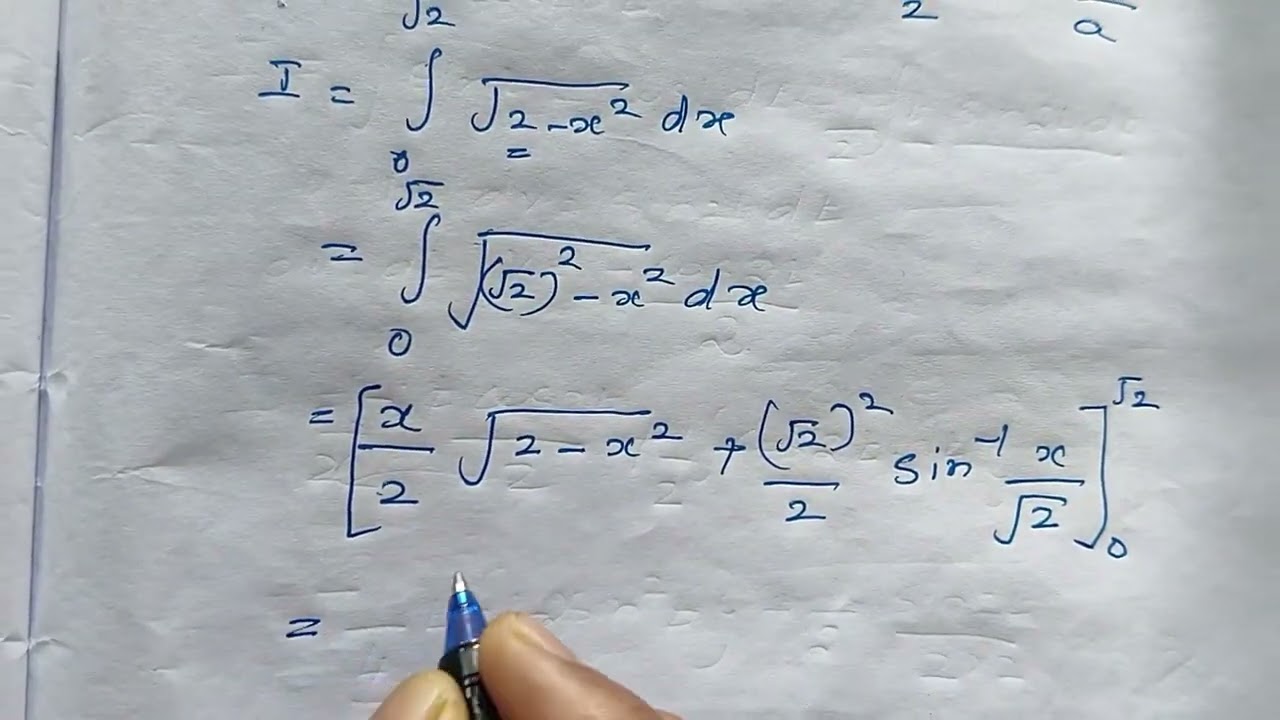 √2 2 a
I = ∫ √2-x² dx
0
√2
= ∫ √(√2)² - x² dx
0
= [x/2 √2-x² + (√2)²/2 sin⁻¹ x/√2]₀^√2
=